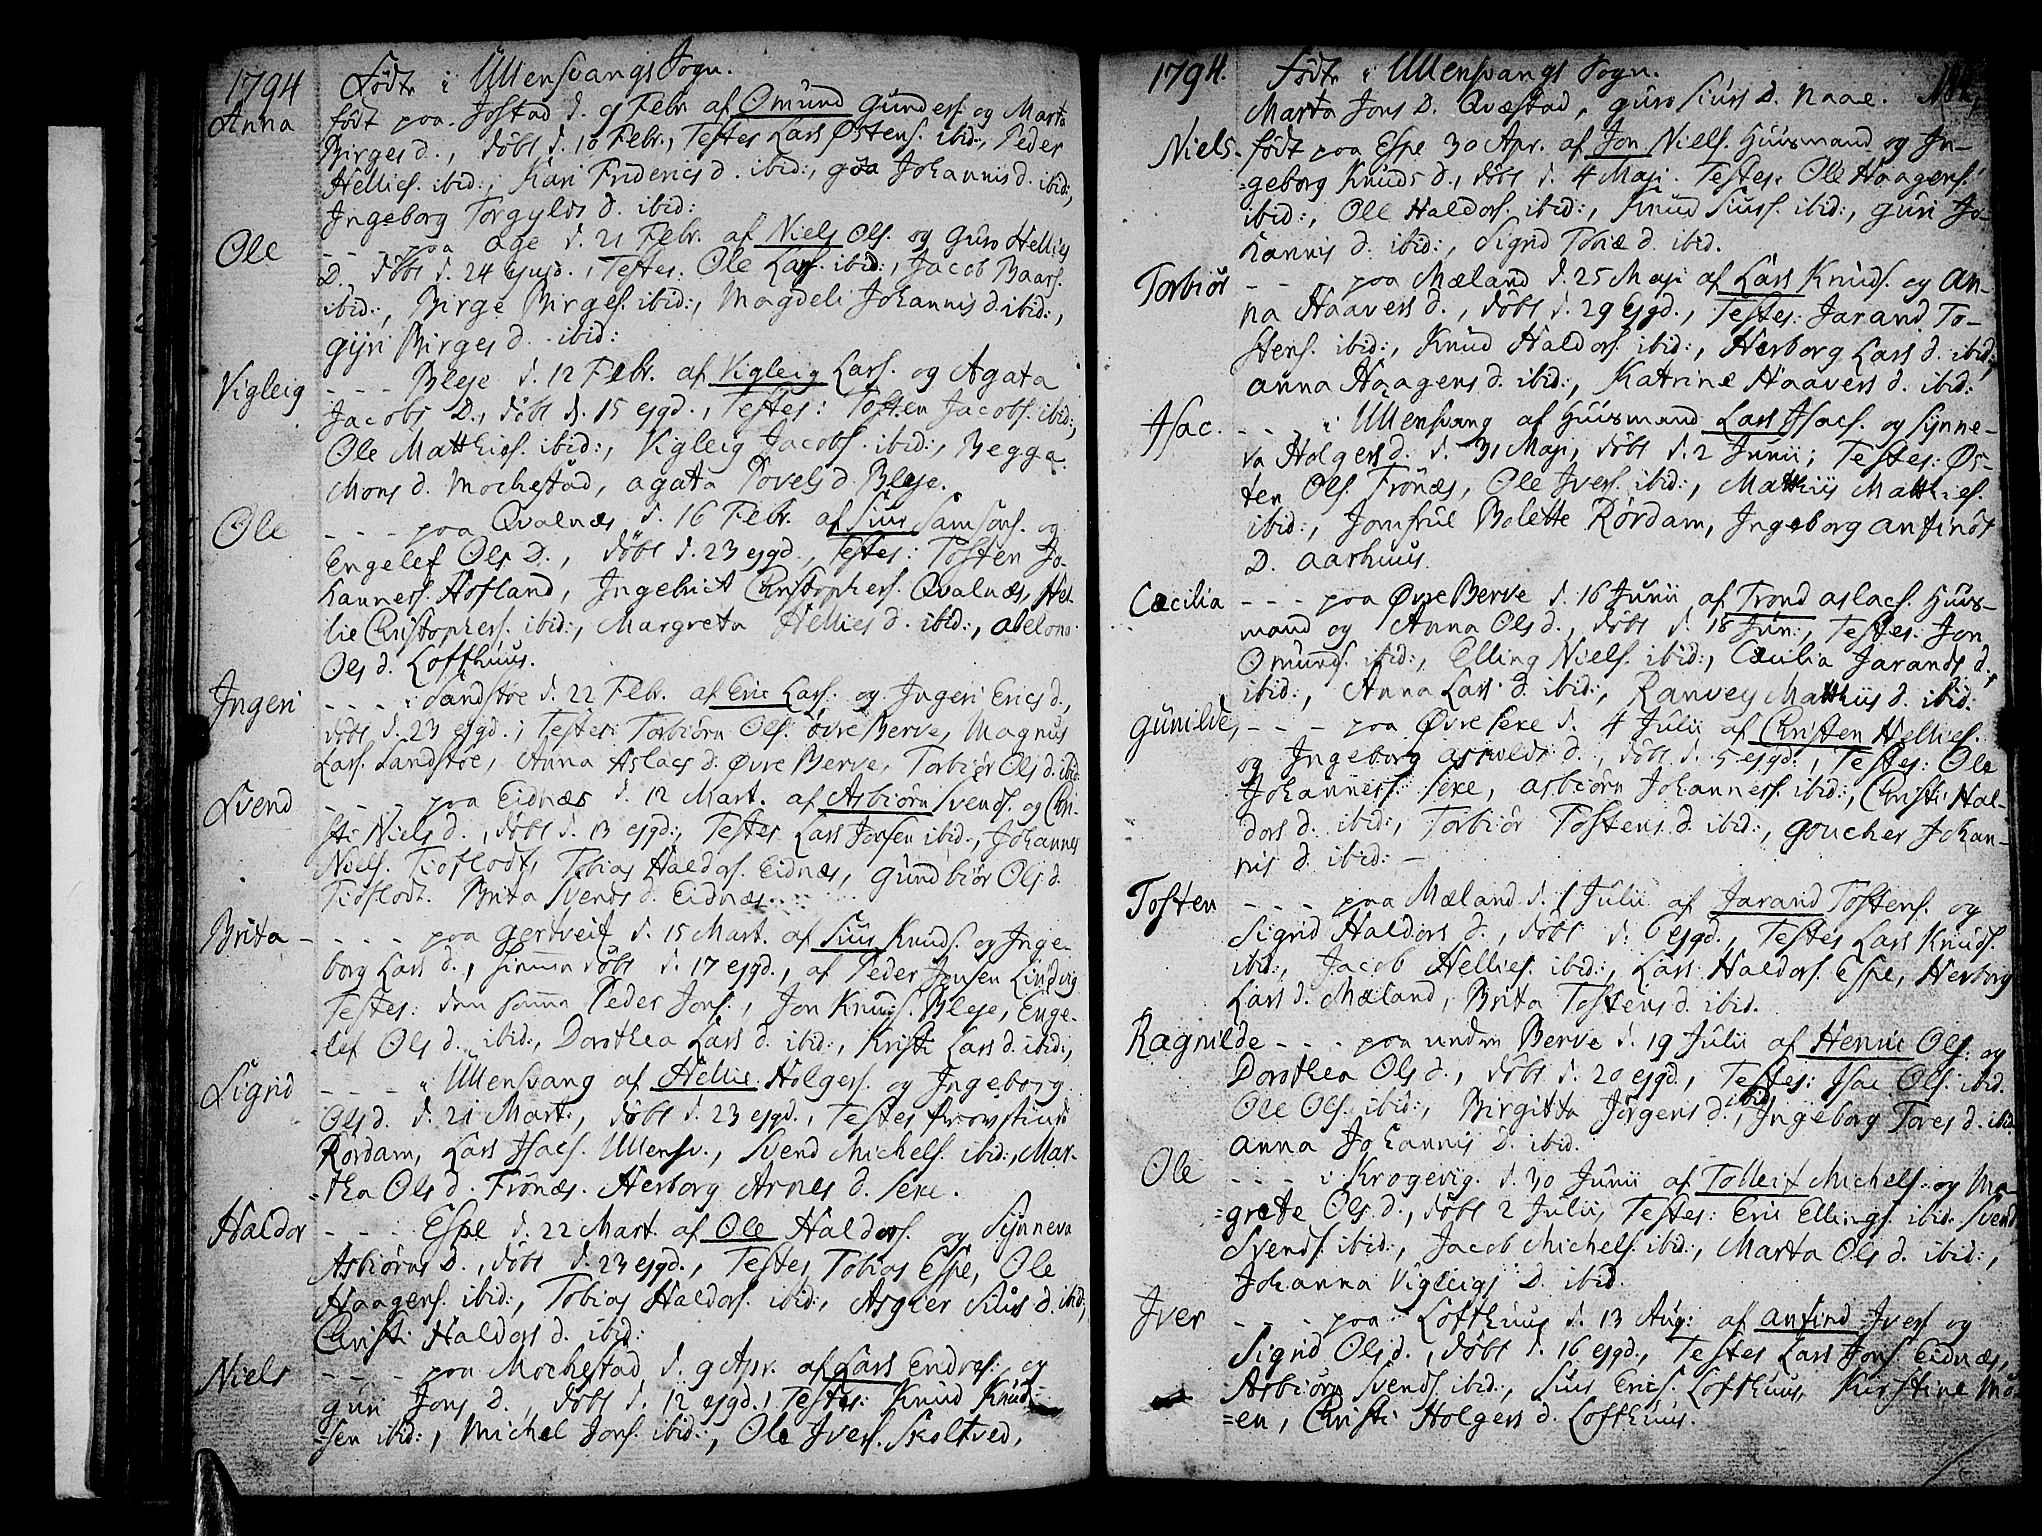 1794 Födte i Ullensvangs Sogn.
Anna födt paa Jostad d. 9 Febr. af Omund Gunders. og Marta
Birges d., döbt d. 10 Febr., Testes Lars Östens. ibid:, Peder
Hellies. ibid:, Kari Friderics d. ibid:, Johannis d. ibid:,
Ingeborg Torgylds d. ibid:
Ole - - paa Age d. 21 Febr. af Niels Ols. og Guro Hellies
D. döbt d. 24 ejusd., Testes: Ole Lars. ibid:, Jacob Baars.
ibid:, Birge Birges. ibid:, Magdeli Johannis d. ibid:,
Gyri Birges d. ibid:
Vigleig - - - Bleje d. 12 Febr. af Vigleig Lars. og Agata
Jacobs D., döbt d. 15 ejgd., Testes: Tosten Jacobs. ibid:,
Ole Matthies. ibid:, Vigleig Jacobs. ibid:, Begga
Mons d. Mochestad, Agata Povels d Bleje.
Ole - - - paa Qvalnæs d. 16 Febr. af Siur Samsons. og
Engelef Ols D., döbt d. 23 ejgd., Testes: Tosten Jo-
hanness. Hofland, Ingebrict Christophers. Qvalnæs, Hel-
lie Christophers. ibid:, Margreta Hellies d. ibid:, Adelona
Ols d. Lofthuus.
Ingeri - - - i Sandstöe d. 22 Febr. af Eric Lars. og Ingeri Erics d.,
döbt d. 23 ejgd.; Testes: Torbiörn Ols. övre Berve, Magnus
Lars. Sandstöe, Anna Aslacs d. Övre Berve, Torbiör Ols d. ibid:
Svend - - - paa Eidnæs d. 12 Mart. af Asbiörn Svends. og Chri-
sti Niels d., döbt d. 13 ejgd:, Testes Lars Jonsen ibid:, Johannes
Niels. Tioflodt, Tobias Haldors. Eidnæs, Gundbiör Ols d.
Tioflodt. Brita Svends d. Eidnæs.
Brita - - - - paa Gertveit d. 15 Mart. af Siur Knuds. og Inge-
borg Lars d., hiemmedöbt d. 17 ejgd., af Peder Jonsen Lindvig
Testes: den samme Peder Jons., Jon Knuds. Bleje, Enge-
lef Ols d. ibid:, Dorothea Lars d. ibid:, Kristi Lars d. ibid:,
Sigrid - - - i Ullensvang af Hellie Holgers. og Ingeborg
Ols d. d. 21 Mart:, döbt d. 23 ejgd., Testes Provstinde
Rördam, Lars Isacs. Ullensv., Svend Michels. ibid:, Mar-
=tha Ols d. Frönæs. Herborg Arnes d. Sexe.
Haldor - - - Espe d. 22 Mart. af Ole Haldors. og Synneva
Asbiörns D., döbt d. 23 ejgd., Testes Tobias Espe, Ole
Haagens. ibid:, Tobias Haldors. ibid:, Asgier Siurs d. ibid:,
Christi Haldors d. ibid:
Niels - - - paa Mochestad, d. 9 Apr. af Lars Endres. og
Guri Jons D., döbt d. 12 ejgd., Testes: Knud Knud-
=sen ibid:, Michel Jons. ibid:, Ole Ivers. Skeltved,
1794. Födte i Ullensvangs Sogn.
Marta Jons D. Qvæstad, Guro Siurs D. Naae.
Niels. födt paa Espe 30 Apr. af Jon Niels. Huusmand og In-
=geborg Knuds d., döbt d. 4 Maji. Testes: Ole Haagens.
ibid:, Ole Haldors. ibid:, Knud Siurs. ibid:, Guri Jo-
hannis d. ibid:, Sigrid Tobiæ d. ibid.
Torbiör - - paa Mæland d. 25 Maji af Lars Knuds. og An-
na Haavers d., döbt d. 29 ejgd., Testes: Jarand To-
stens. ibid:, Knud Haldors. ibid:, Herborg Lars d. ibid:,
Anna Haagens d. ibid:, Katrine Haavers d. ibid:
Isac. - - - i Ullensvang af Huusmand Lars Isacs. og Synne-
va Holgers d. d. 31 Maji, döbt d. 2 Junii; Testes: Ös-
ten Ols. Frönæs, Ole Ivers. ibid:, Matthiis Matthies.
ibid:, Jomfrue Bolette Rördam, Ingeborg Anfinds
D. Aarhuus.
Cæcilia - - - paa Övre Berve d. 16 Junii af Trond Aslacs. Huus-
mand og Anna Ols d., döbt d. 18 Jun:, Testes: Jon
Omunds. ibid:, Elling Niels. ibid:, Cæcilia Jarands d.
ibid:, Anna Lars d. ibid:, Ranvey Matthiis d. ibid:
Gunilde, - - - paa Övre Sexe d. 4 Julii af Christen Hellies.
og Ingeborg d., döbt d. 5 ejgd., Testes: Ole
Johanness. Sexe, Asbiörn Johanness. ibid:, Christi Hal-
dors d. ibid:, Torbiör Tostens d. ibid:, Goucher Johan-
nis d. ibid: -
Tosten - - - paa Mæland d. 1 Julii af Jarand Tostens. og
Sigrid Haldors d., döbt d. 6 ejgd., Testes Lars Knuds.
ibid:, Jacob Hellies. ibid:, Lars Haldors. Espe, Herborg
Lars d. Mæland, Brita Tostens d. ibid.
Ragnilde - - - paa unden Berve d. 19 Julii af Henric Ols. og
Dorothea Ols d., döbt d. 20 ejgd., Testes: Isac Ols. ibid.
Ole Ols. ibid:, Birgitta Jörgens d. ibid:, Ingeborg Tores d. ibid.
Anna Johannis D. ibid.
Ole - - - i Krogevig. d. 30 Junii af Tolleif Michels. og Ma-
=grete Ols d., döbt 2 Julii, Testes: Eric Ellings. ibid. Svend
Svends. ibid:, Jacob Michels. ibid:, Marta Ols d. ibid:,
Johanna Vigleigs D. ibid.
Iver - - - paa Lofthuus d. 13 Aug: af Anfind Ivers. og
Sigrid Ols d., döbt d. 16 ejgd., Testes Lars Jons. Eidnæs,
Asbiörn Svends. ibid:, Siur Erics. Lofthuus, Kirstine Mö-
=en, Christi Holgers d. Lofthuus.